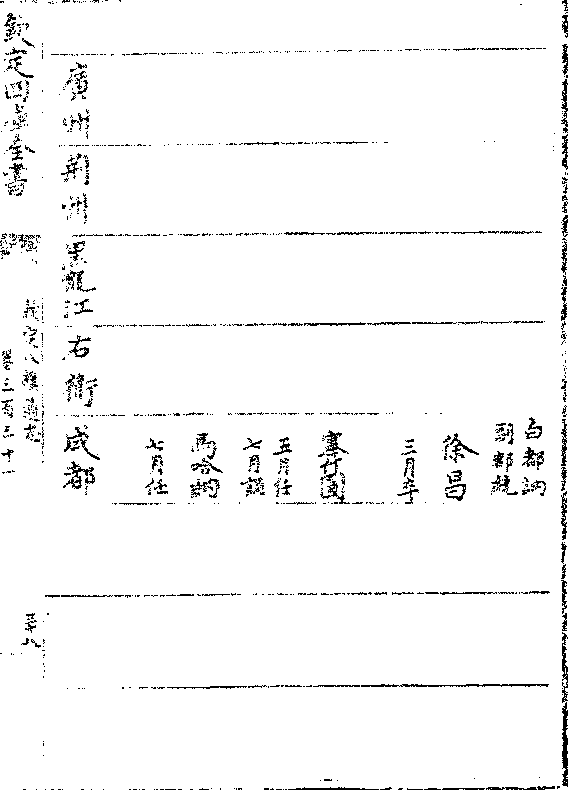 白都訥
副都統
徐昌
三月卒
塞什圖
五月任
七月調
馬哈訥
七月任
廣州
荆州
黑龍江
右衛
成都
欽定四庫全書
欽定八旗通志
卷三百三十一